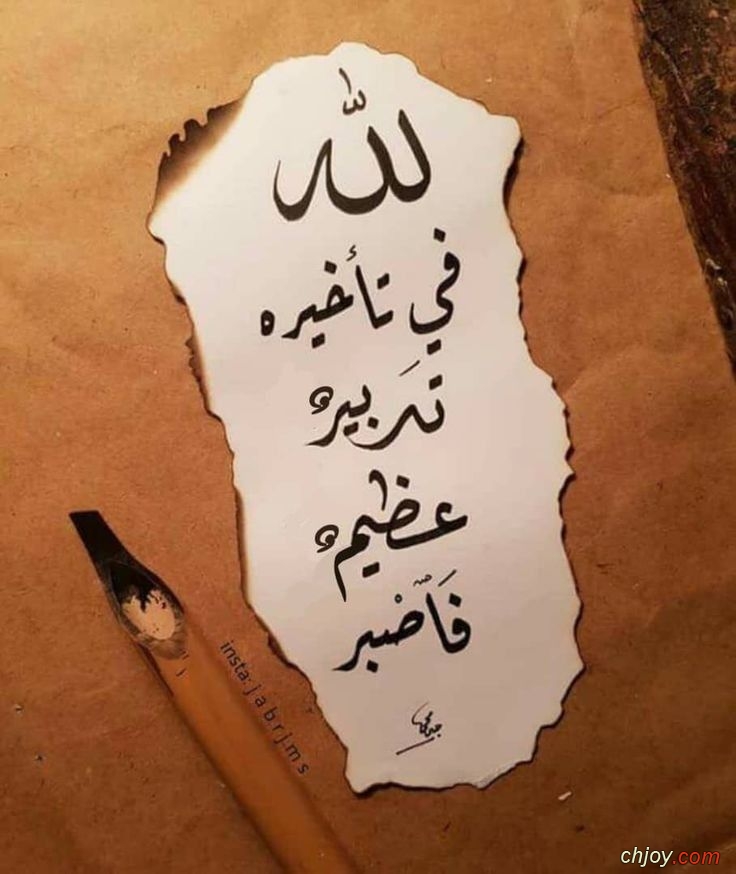 لله
في تأخيره
تَدبيرٌ
عظيمٌ
فَاصْبر
insta: j a b r j.m s
chjoy.com